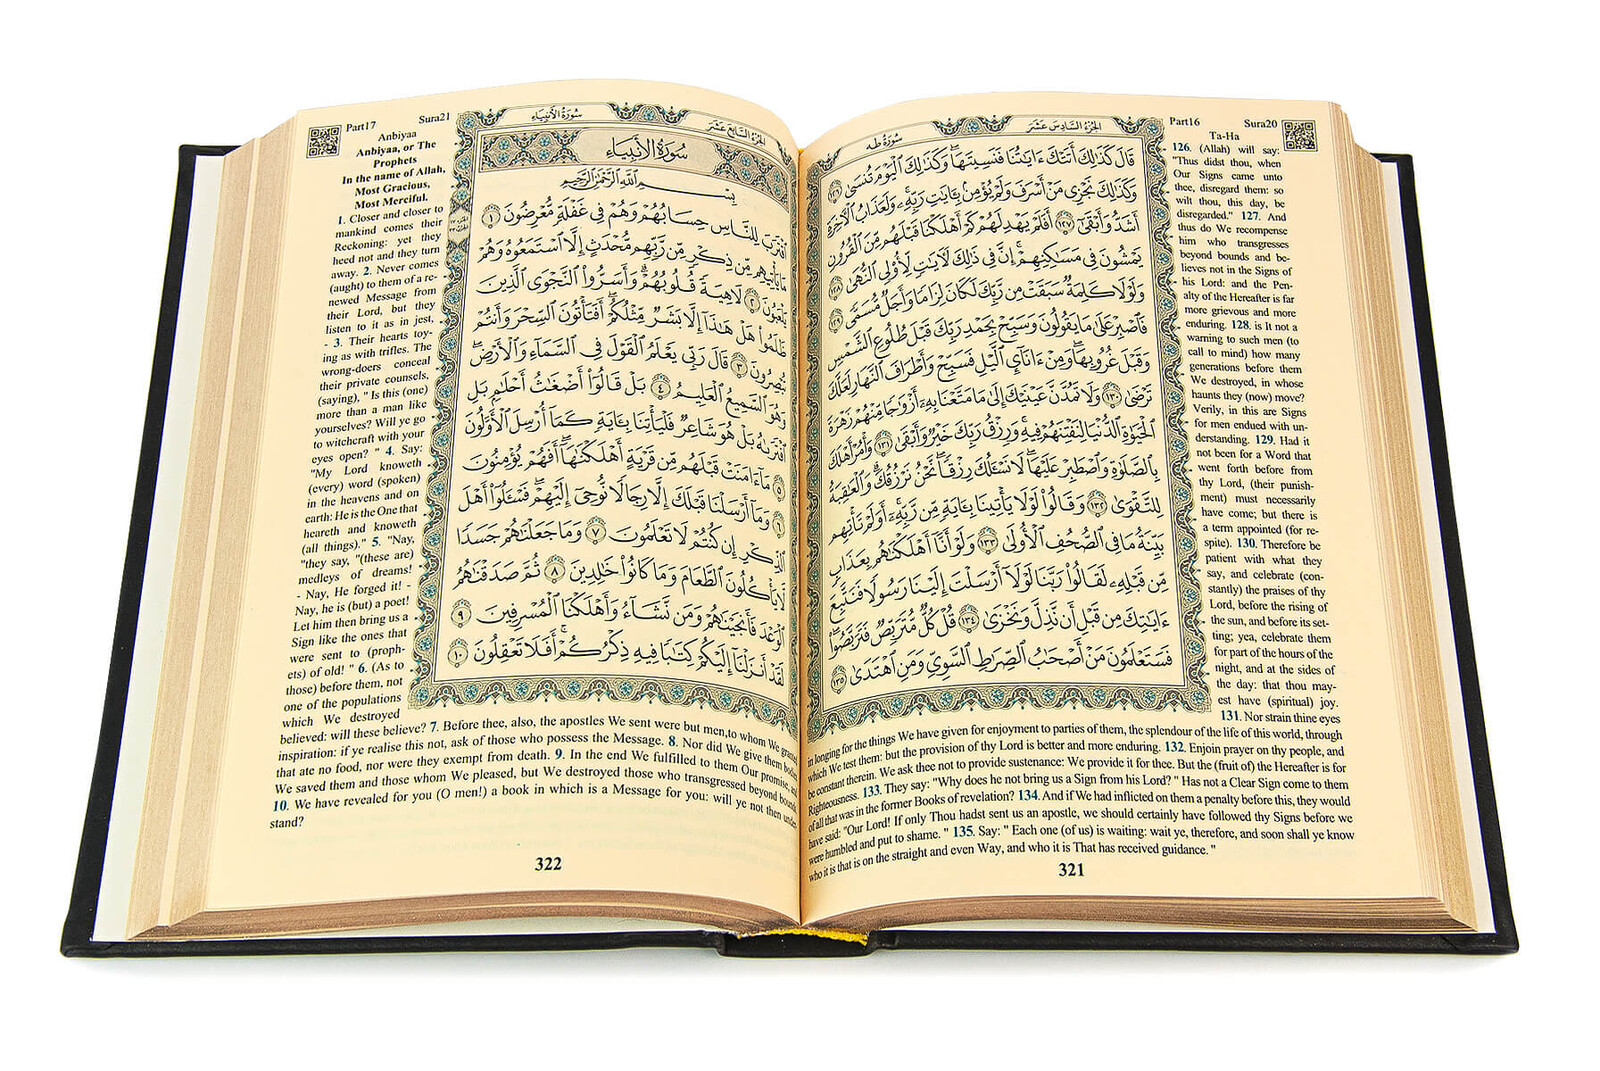 Part16 Sura20
الجزء السادس عشر سورة طه
قَالَ كَذَٰلِكَ أَتَتْكَ ءَايَٰتُنَا فَنَسِيتَهَا ۖ وَكَذَٰلِكَ الْيَوْمَ تُنسَىٰ ١٢٦
وَكَذَٰلِكَ نَجْزِى مَنْ أَسْرَفَ وَلَمْ يُؤْمِنۢ بِـَٔايَٰتِ رَبِّهِۦ ۚ وَلَعَذَابُ الْـَٔاخِرَةِ
أَشَدُّ وَأَبْقَىٰٓ ١٢٧ أَفَلَمْ يَهْدِ لَهُمْ كَمْ أَهْلَكْنَا قَبْلَهُم مِّنَ الْقُرُونِ
يَمْشُونَ فِى مَسَٰكِنِهِمْ ۗ إِنَّ فِى ذَٰلِكَ لَـَٔايَٰتٍ لِّأُو۟لِى النُّهَىٰ ١٢٨
وَلَوْلَا كَلِمَةٌ سَبَقَتْ مِن رَّبِّكَ لَكَانَ لِزَامًا وَأَجَلٌ مُّسَمًّى ١٢٩
فَاصْبِرْ عَلَىٰ مَا يَقُولُونَ وَسَبِّحْ بِحَمْدِ رَبِّكَ قَبْلَ طُلُوعِ الشَّمْسِ
وَقَبْلَ غُرُوبِهَا ۖ وَمِنْ ءَانَآئِ الَّيْلِ فَسَبِّحْ وَأَطْرَافَ النَّهَارِ لَعَلَّكَ
تَرْضَىٰ ١٣٠ وَلَا تَمُدَّنَّ عَيْنَيْكَ إِلَىٰ مَا مَتَّعْنَا بِهِۦٓ أَزْوَٰجًا مِّنْهُمْ زَهْرَةَ
الْحَيَوٰةِ الدُّنْيَا لِنَفْتِنَهُمْ فِيهِ ۚ وَرِزْقُ رَبِّكَ خَيْرٌ وَأَبْقَىٰ ١٣١ وَأْمُرْ أَهْلَكَ
بِالصَّلَوٰةِ وَاصْطَبِرْ عَلَيْهَا ۖ لَا نَسْـَٔلُكَ رِزْقًا ۖ نَّحْنُ نَرْزُقُكَ ۗ وَالْعَٰقِبَةُ
لِلتَّقْوَىٰ ١٣٢ وَقَالُوا۟ لَوْلَا يَأْتِينَا بِـَٔايَةٍ مِّن رَّبِّهِۦٓ ۚ أَوَلَمْ تَأْتِهِم
بَيِّنَةُ مَا فِى الصُّحُفِ الْأُولَىٰ ١٣٣ وَلَوْ أَنَّآ أَهْلَكْنَٰهُم بِعَذَابٍ
مِّن قَبْلِهِۦ لَقَالُوا۟ رَبَّنَا لَوْلَآ أَرْسَلْتَ إِلَيْنَا رَسُولًا فَنَتَّبِعَ
ءَايَٰتِكَ مِن قَبْلِ أَن نَّذِلَّ وَنَخْزَىٰ ١٣٤ قُلْ كُلٌّ مُّتَرَبِّصٌ فَتَرَبَّصُوا۟ ۖ
فَسَتَعْلَمُونَ مَنْ أَصْحَٰبُ الصِّرَٰطِ السَّوِىِّ وَمَنِ اهْتَدَىٰ ١٣٥
Ta-Ha
126. (Allah) will say:
"Thus didst thou, when
Our Signs came unto
thee, disregard them: so
wilt thou, this day, be
disregarded." 127. And
thus do We recompense
him who transgresses
beyond bounds and be-
lieves not in the Signs of
his Lord: and the Pen-
alty of the Hereafter is far
more grievous and more
enduring. 128. is It not a
warning to such men (to
call to mind) how many
generations before them
We destroyed, in whose
haunts they (now) move?
Verily, in this are Signs
for men endued with un-
derstanding. 129. Had it
not been for a Word that
went forth before from
thy Lord, (their punish-
ment) must necessarily
have come; but there is
a term appointed (for re-
spite). 130. Therefore be
patient with what they
say, and celebrate (con-
stantly) the praises of thy
Lord, before the rising of
the sun, and before its set-
ting; yea, celebrate them
for part of the hours of the
night, and at the sides of
the day: that thou may-
est have (spiritual) joy.
131. Nor strain thine eyes
in longing for the things We have given for enjoyment to parties of them, the splendour of the life of this world, through
which We test them: but the provision of thy Lord is better and more enduring. 132. Enjoin prayer on thy people, and
be constant therein. We ask thee not to provide sustenance: We provide it for thee. But the (fruit of) the Hereafter is for
Righteousness. 133. They say: "Why does he not bring us a Sign from his Lord?" Has not a Clear Sign come to them
of all that was in the former Books of revelation? 134. And if We had inflicted on them a penalty before this, they would
have said: "Our Lord! If only Thou hadst sent us an apostle, we should certainly have followed thy Signs before we
were humbled and put to shame. " 135. Say: " Each one (of us) is waiting: wait ye, therefore, and soon shall ye know
who it is that is on the straight and even Way, and who it is That has received guidance. "
321
Part17 Sura21
الجزء السابع عشر سورة الأنبياء
سورة الأنبياء
بِسْمِ اللَّهِ الرَّحْمَٰنِ الرَّحِيمِ
اقْتَرَبَ لِلنَّاسِ حِسَابُهُمْ وَهُمْ فِى غَفْلَةٍ مُّعْرِضُونَ ١
مَا يَأْتِيهِم مِّن ذِكْرٍ مِّن رَّبِّهِم مُّحْدَثٍ إِلَّا اسْتَمَعُوهُ وَهُمْ
يَلْعَبُونَ ٢ لَاهِيَةً قُلُوبُهُمْ ۗ وَأَسَرُّوا۟ النَّجْوَى الَّذِينَ
ظَلَمُوا۟ هَلْ هَٰذَآ إِلَّا بَشَرٌ مِّثْلُكُمْ ۖ أَفَتَأْتُونَ السِّحْرَ وَأَنتُمْ
تُبْصِرُونَ ٣ قَالَ رَبِّى يَعْلَمُ الْقَوْلَ فِى السَّمَآءِ وَالْأَرْضِ ۖ
وَهُوَ السَّمِيعُ الْعَلِيمُ ٤ بَلْ قَالُوٓا۟ أَضْغَٰثُ أَحْلَٰمٍۭ بَلِ
افْتَرَىٰهُ بَلْ هُوَ شَاعِرٌ فَلْيَأْتِنَا بِـَٔايَةٍ كَمَآ أُرْسِلَ الْأَوَّلُونَ
٥ مَآ ءَامَنَتْ قَبْلَهُم مِّن قَرْيَةٍ أَهْلَكْنَٰهَآ ۖ أَفَهُمْ يُؤْمِنُونَ
٦ وَمَآ أَرْسَلْنَا قَبْلَكَ إِلَّا رِجَالًا نُّوحِىٓ إِلَيْهِمْ ۖ فَسْـَٔلُوٓا۟ أَهْلَ
الذِّكْرِ إِن كُنتُمْ لَا تَعْلَمُونَ ٧ وَمَا جَعَلْنَٰهُمْ جَسَدًا
لَّا يَأْكُلُونَ الطَّعَامَ وَمَا كَانُوا۟ خَٰلِدِينَ ٨ ثُمَّ صَدَقْنَٰهُمُ
الْوَعْدَ فَأَنجَيْنَٰهُمْ وَمَن نَّشَآءُ وَأَهْلَكْنَا الْمُسْرِفِينَ ٩
لَقَدْ أَنزَلْنَآ إِلَيْكُمْ كِتَٰبًا فِيهِ ذِكْرُكُمْ ۖ أَفَلَا تَعْقِلُونَ ١٠
Anbiyaa
Anbiyaa, or The
Prophets
In the name of Allah,
Most Gracious,
Most Merciful.
1. Closer and closer to
mankind comes their
Reckoning: yet they
heed not and they turn
away. 2. Never comes
(aught) to them of a re-
newed Message from
their Lord, but they
listen to it as in jest,
- 3. Their hearts toy-
ing as with trifles. The
wrong-doers conceal
their private counsels,
(saying), " Is this (one)
more than a man like
yourselves? Will ye go
to witchcraft with your
eyes open? " 4. Say:
"My Lord knoweth
(every) word (spoken)
in the heavens and on
earth: He is the One that
heareth and knoweth
(all things)." 5. "Nay,
"they say, "(these are)
medleys of dreams!
- Nay, He forged it! -
Nay, he is (but) a poet!
Let him then bring us a
Sign like the ones that
were sent to (proph-
ets) of old! " 6. (As to
those) before them, not
one of the populations
which We destroyed
believed: will these believe? 7. Before thee, also, the apostles We sent were but men,to whom We granted
inspiration: if ye realise this not, ask of those who possess the Message. 8. Nor did We give them bodies
that ate no food, nor were they exempt from death. 9. In the end We fulfilled to them Our promise, and
We saved them and those whom We pleased, but We destroyed those who transgressed beyond bounds
10. We have revealed for you (O men!) a book in which is a Message for you: will ye not then under-
stand?
322